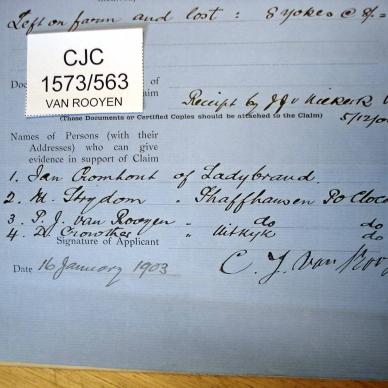 Left on farm and lost : 8 yokes @ 8/=
CJC
1573/563
VAN ROOYEN
Claim
of
Claim
Receipt by J J v Niekerk
5/12/0
(Those Documents or Certified Copies should be attached to the Claim)
Names of Persons (with their
Addresses) who can give
evidence in support of Claim
1. Jan Cromhout of Ladybrand.
2. M. Strydom " Shaffhausen Po Cloco
3. P. J. van Rooyen " do do
4. D. Crowther " Uitkyk do
Signature of Applicant
Date 16 January 1903 C. J. van Rooy